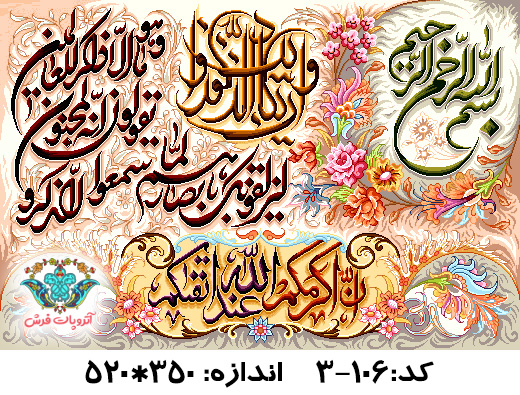 بسم الله الرحمن الرحیم
وان یکاد الذین کفروا
لیزلقونک بابصارهم لما سمعوا الذکر و
یقولون انه لمجنون
وما هو الا ذکر للعالمین
ان اکرمکم عند الله اتقکم
آتروپات فرش
کد:۳-۱۰۶ اندازه: ۵۲۰*۳۵۰